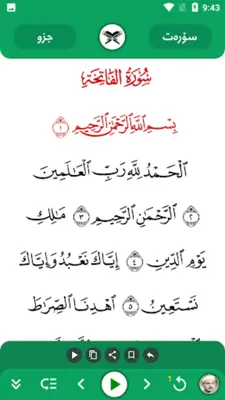 9:43
سۆرەت
جزو
سُورَةُ الفَاتِحَة
بِسْمِ ٱللَّهِ ٱلرَّحْمَٰنِ ٱلرَّحِيمِ ١
ٱلْحَمْدُ لِلَّهِ رَبِّ ٱلْعَٰلَمِينَ
٢ ٱلرَّحْمَٰنِ ٱلرَّحِيمِ ٣ مَٰلِكِ
يَوْمِ ٱلدِّينِ ٤ إِيَّاكَ نَعْبُدُ وَإِيَّاكَ
نَسْتَعِينُ ٥ ٱهْدِنَا ٱلصِّرَٰطَ
1